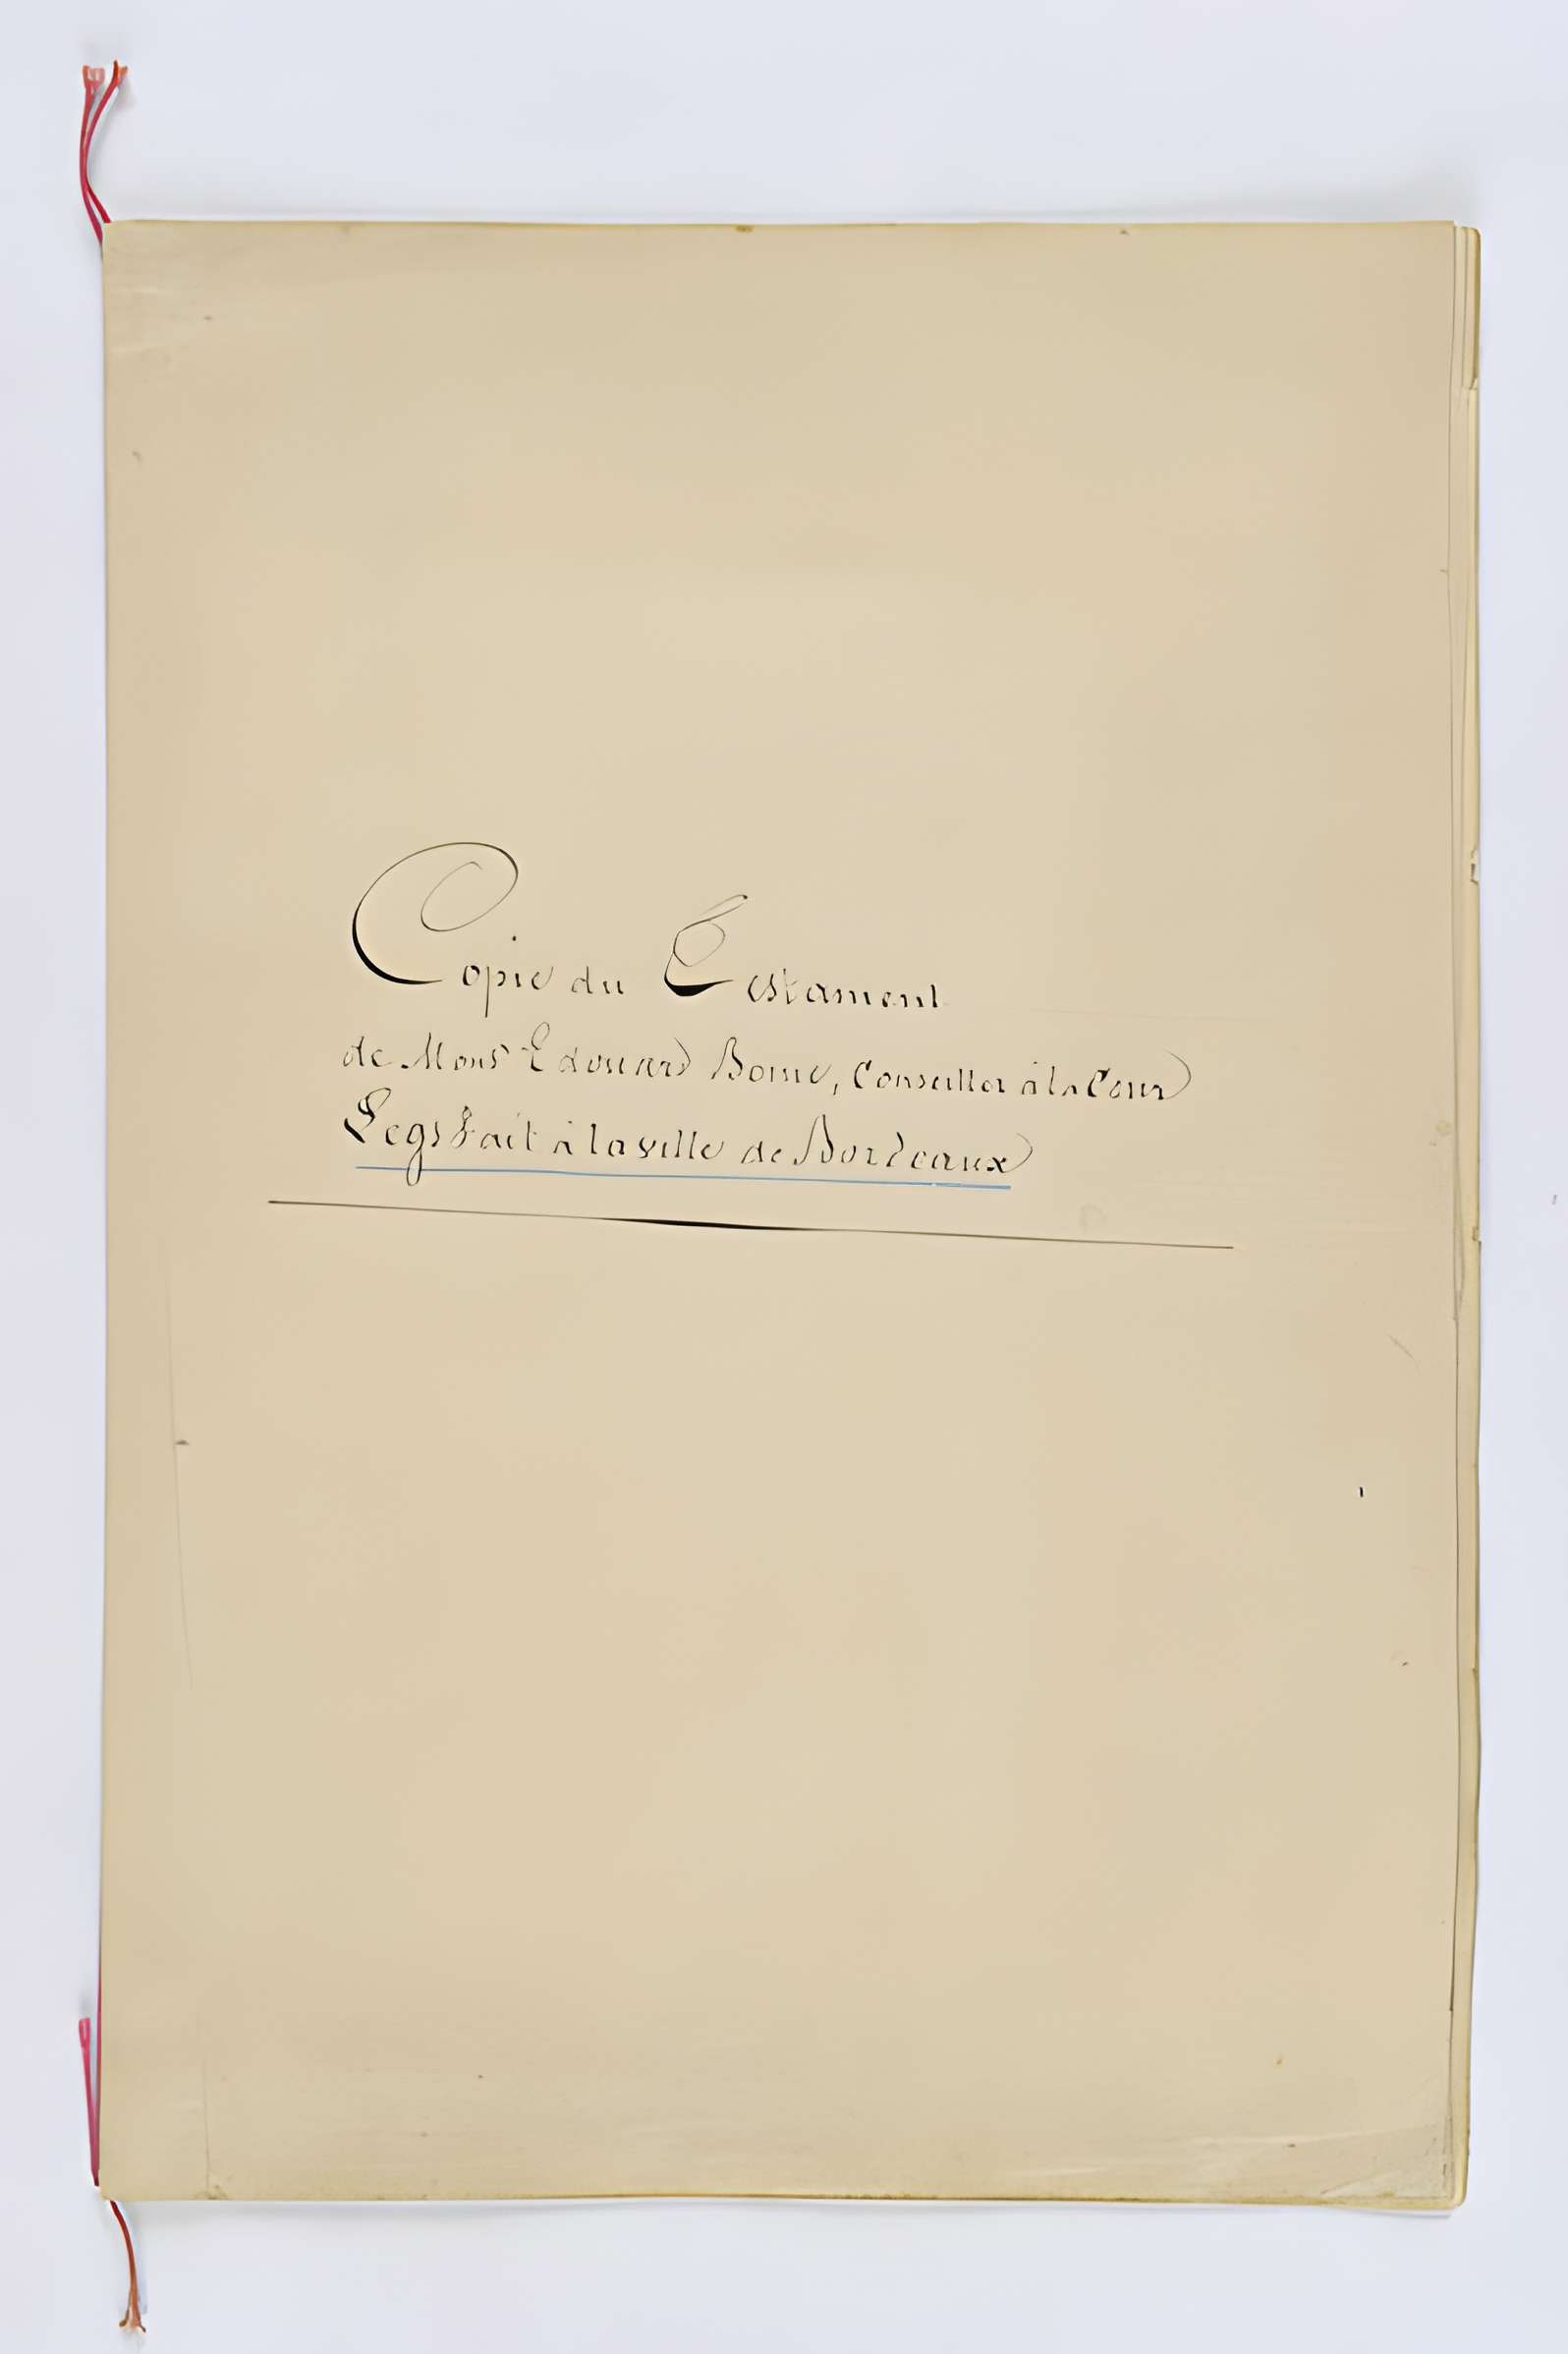 Copie du Testament
de Mons<sup>r</sup> Edouard Bonie, Conseiller à la Cour
Legs fait à la ville de Bordeaux